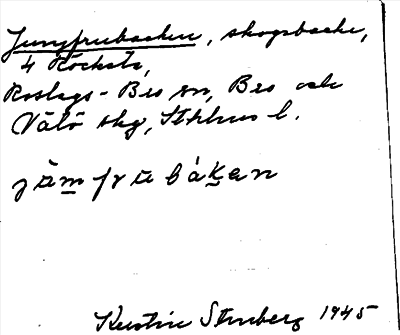 Jungfrubacken, skogsbacke,
å Röcksta,
Roslags-Bro sn, Bro och
Vätö skg, Sthlms l.
jä̀mfrʉbákan
Kerstin Stenberg 1945